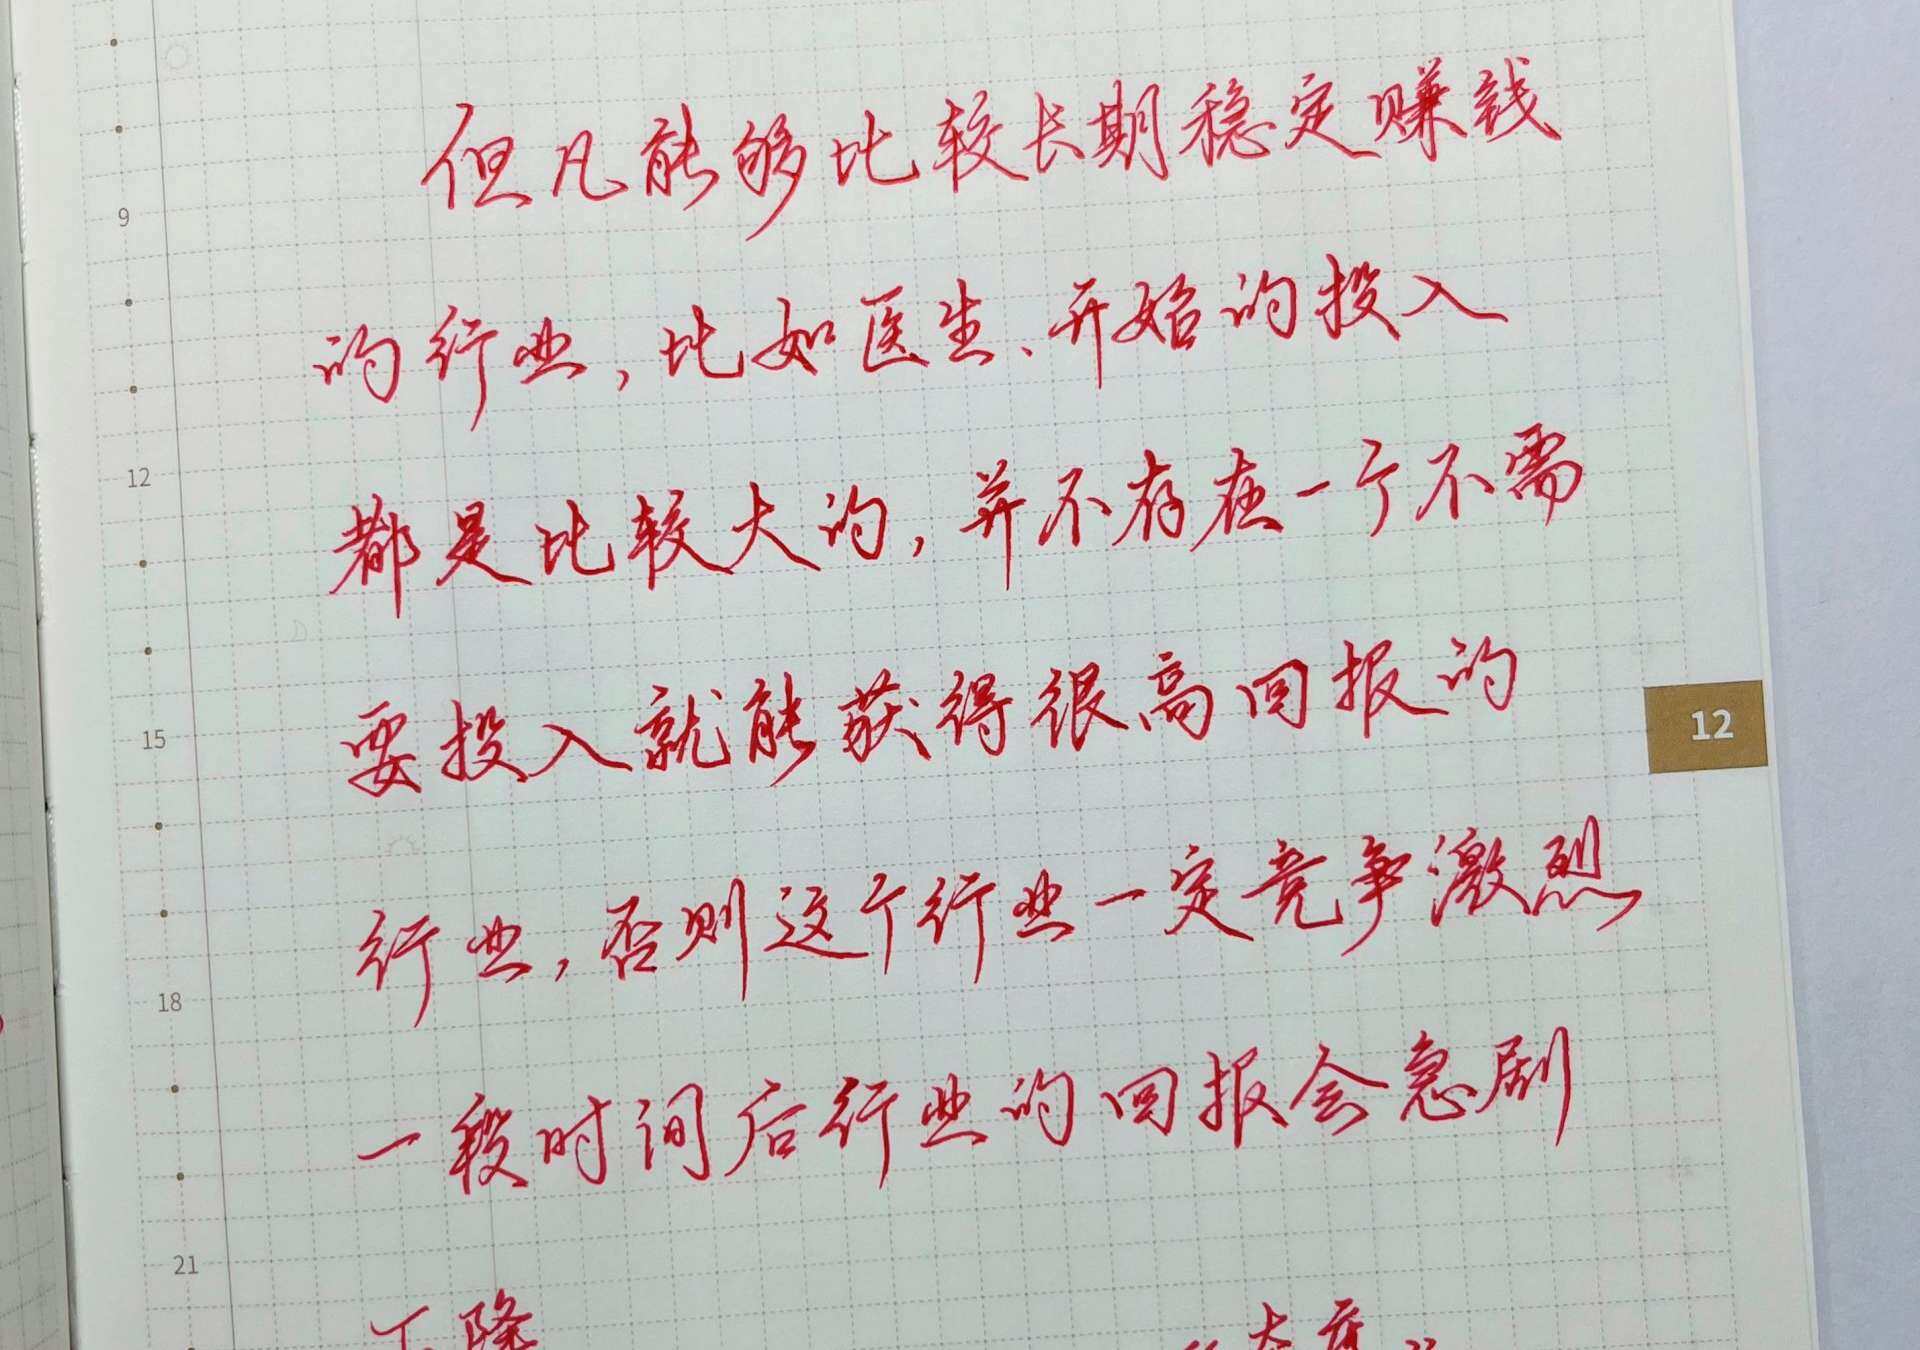 但凡能够比较长期稳定赚钱
9
的行业，比如医生、开始的投入
12
都是比较大的，并不存在一个不需
要投入就能获得很高回报的
15
12
行业，否则这个行业一定竞争激烈
18
一段时间后行业的回报会急剧
21
下降